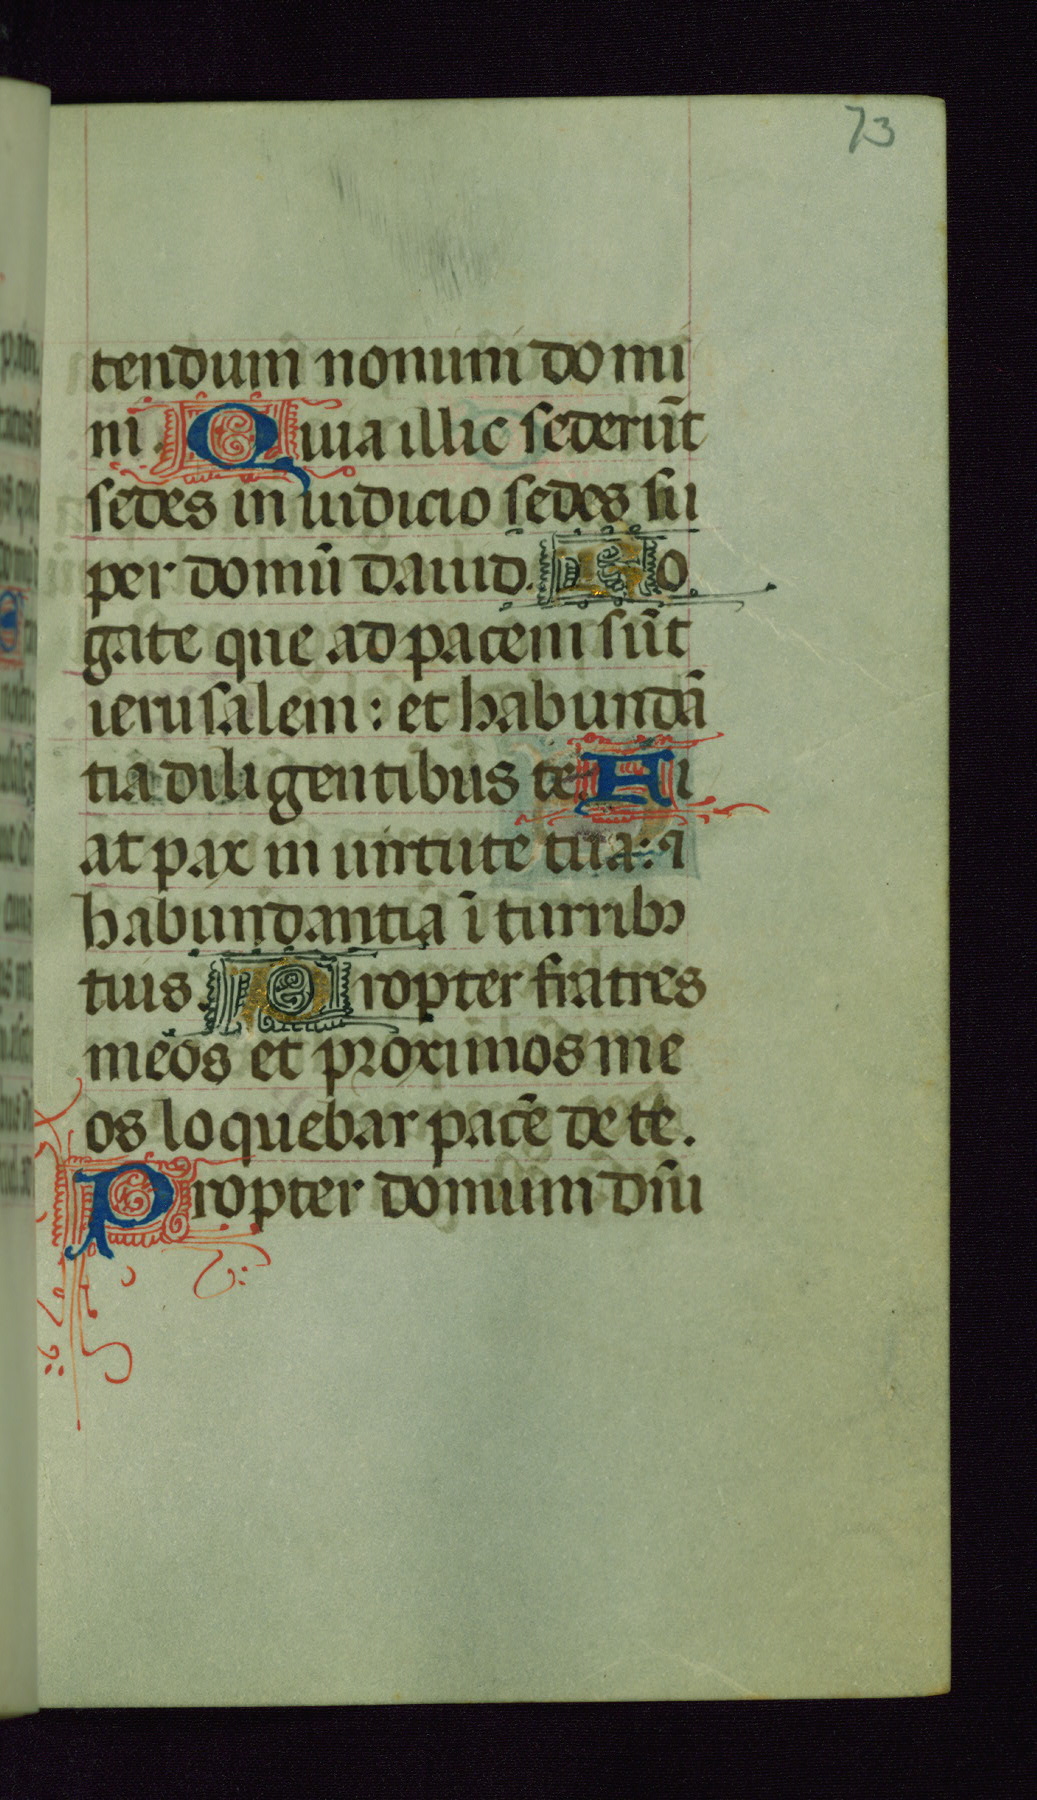 73
tendum nomini domi
ni. Quia illic sederūt
sedes in iudicio sedes su
per domū dauid. Ro
gate que ad pacem sūt
ierusalem : et habundā
tia diligentibus te. Fi
at pax in uirtute tua : ⁊
habundantia ī turribꝰ
tuis. Propter fratres
meos et proximos me
os loquebar pacē de te.
Propter domum dn̄i